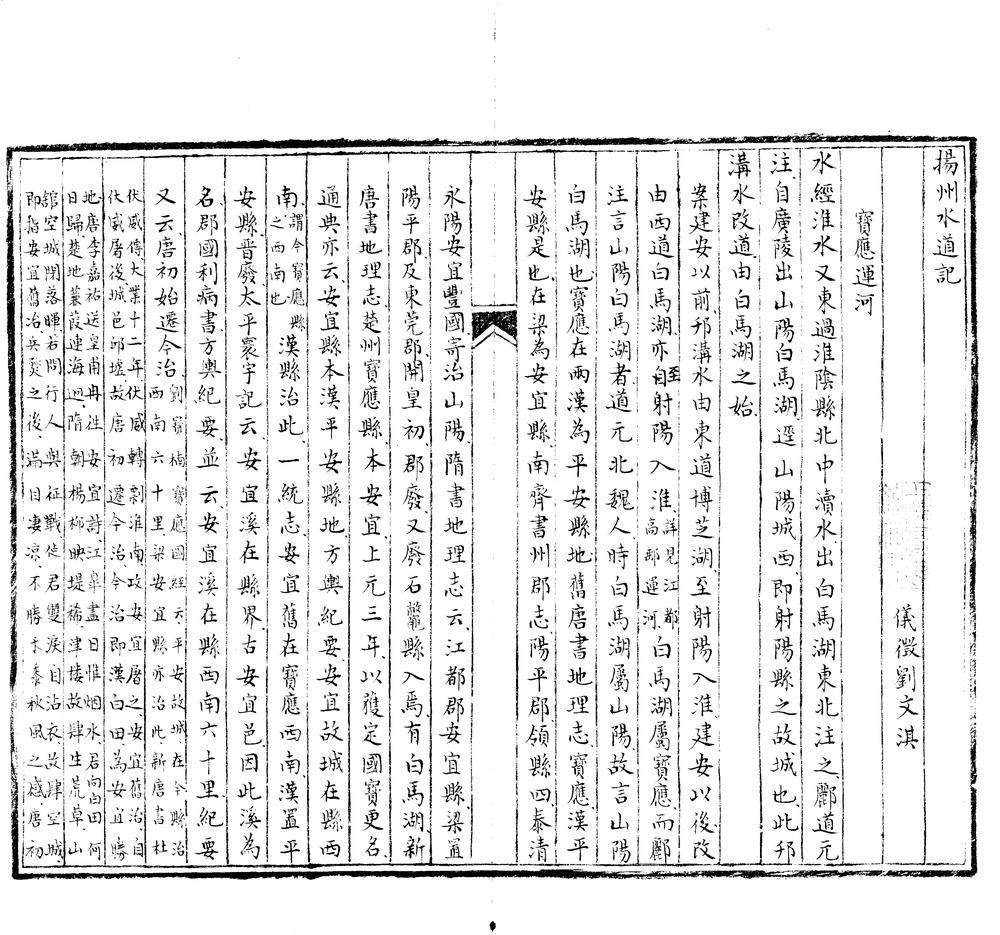 揚州水道記
儀徵劉文淇
寶應運河
水經淮水又東過淮陰縣北中瀆水出白馬湖東北注之酈道元
注自廣陵出山陽白馬湖逕山陽城西即射陽縣之故城也此邗
溝水改道由白馬湖之始
案建安以前邗溝水由東道博芝湖至射陽入淮建安以後改
由西道白馬湖亦自至射陽入淮詳見江都高郵運河白馬湖屬寶應而酈
注言山陽白馬湖者道元北魏人時白馬湖屬山陽故言山陽
白馬湖也寶應在兩漢為平安縣地舊唐書地理志寶應漢平
安縣是也在梁為安宜縣南齊書州郡志陽平郡領縣四泰清
永陽安宜豐國寄治山陽隋書地理志云江都郡安宜縣梁置
陽平郡及東莞郡開皇初郡廢又廢石鼈縣入焉有白馬湖新
唐書地理志楚州寶應縣本安宜上元三年以獲定國寶更名
通典亦云安宜縣本漢平安縣地方輿紀要安宜故城在縣西
南謂今寶應縣之西南也漢縣治此一統志安宜舊在寶應西南漢置平
安縣晉廢太平寰宇記云安宜溪在縣界古安宜邑因此溪為
名郡國利病書方輿紀要並云安宜溪在縣西南六十里紀要
又云唐初始遷今治劉寶楠寶應圖經云平安故城在今縣治西南六十里梁安宜縣亦治此新唐書杜
伏威傳大業十二年伏威轉剽淮南攻安宜屠之安宜舊治自伏威屠後城邑邱墟故唐初遷今治今治即漢白田為安宜勝
地唐李嘉祐送皇甫冉往安宜詩江皋盡日惟烟水君向白田何日歸楚地蒹葭連海迥隋朝楊柳映堤稀津樓故肆生荒草山
館空城閉落暉若問行人與征戰使君雙淚自沾衣故肆空城即指安宜舊治兵燹之後滿目凄凉不勝禾黍秋風之感唐初